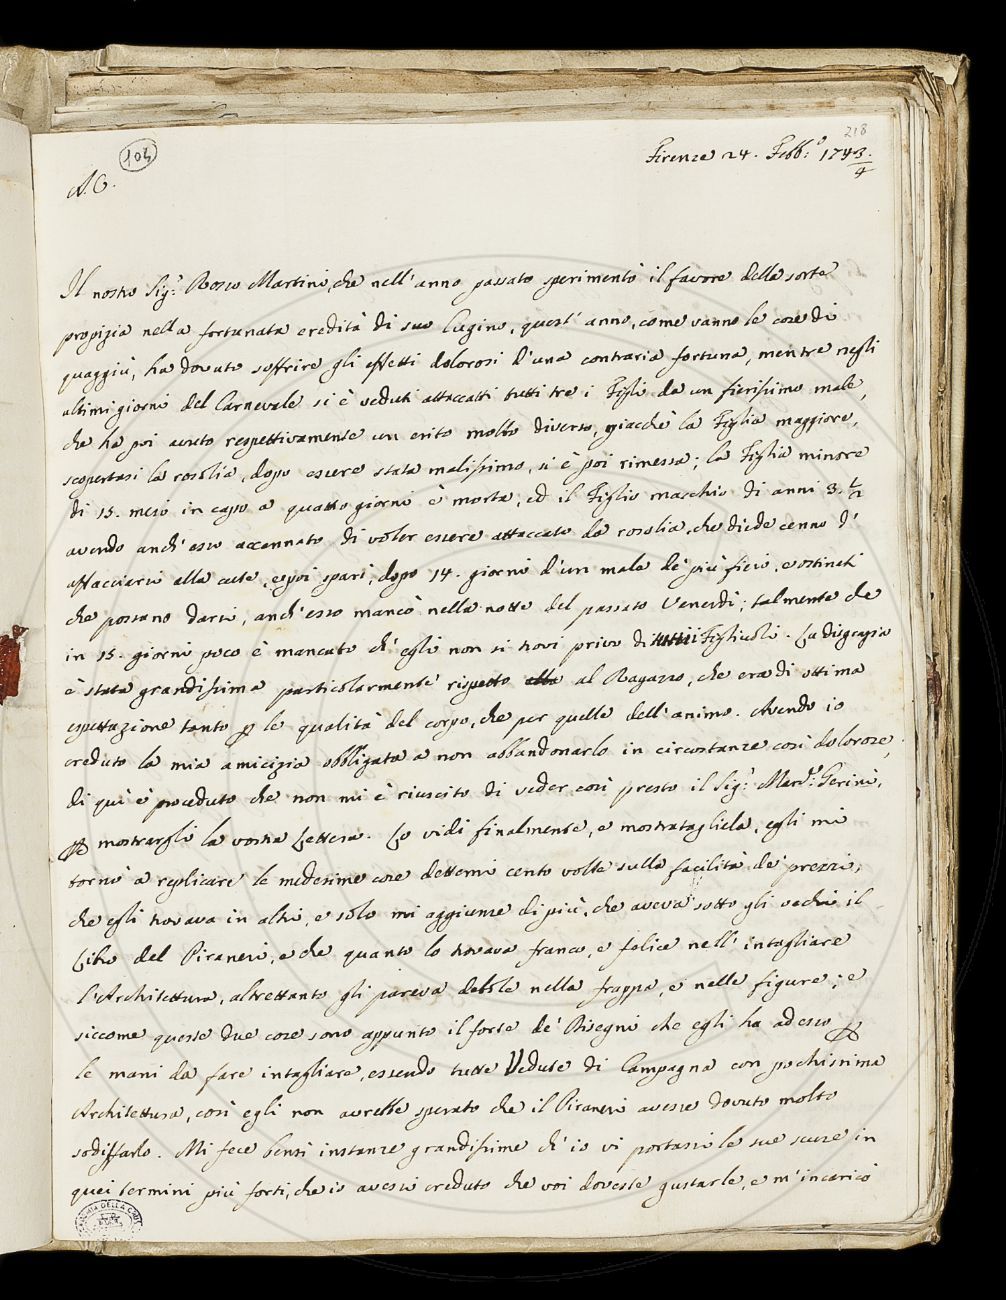 218
104
Firenze 24. Febb:o 1743/4
A. C.
Il nostro Sig:r Bosco Martini, che nell' anno passato sperimentò il favore della sorte
propizia nella fortunata eredità di suo Cugino, quest' anno, come vanno le cose di
quaggiù, ha dovuto soffrire gli effetti dolorosi d'una contraria fortuna, mentre negli
ultimi giorni del Carnevale si è veduti attaccatti tutti tre i Figli da un fierissimo male,
che ha poi avuto respettivamente un esito molto diverso, giacchè la Figlia maggiore,
scopertasi la rosolia, dopo essere stata malissimo, si è poi rimessa; la Figlia minore
di 15. mesi in capo a quattro giorni è morta, ed il Figlio maschio di anni 3. 1/2
avendo anch' esso accennato di voler essere attaccato da rosolia, che diede cenno d'
affacciarsi alla cute, e poi sparì, dopo 14. giorni d'un male de' più fieri, e ostinati
che possano darsi, anch' esso mancò nella notte del passato Venerdì; talmente che
in 15. giorni poco è mancato ch' egli non si trovi privo di Figliuoli. La disgrazia
è stata grandissima particolarmente rispetto alla al Ragazzo, che era di ottima
espettazione tanto p le qualità del corpo, che per quelle dell' animo. Avendo io
creduto la mia amicizia obbligata a non abbandonarlo in circostanze così dolorose,
di quì è proceduto che non mi è riuscito di veder così presto il Sig:r March:e Gerini,
p mostrargli la vostra Lettera. Lo vidi finalmente, e mostratagliela, egli mi
tornò a replicare le medesime cose dettemi cento volte sulla facilità de' prezzi,
che egli trovava in altri, e solo mi aggiunse di più, che aveva sotto gli occhi il
Libro del Piranesi, e che quanto lo trovava franco, e felice nell' intagliare
l'Architettura, altrettanto gli pareva debole nella frappa, e nelle figure; e
siccome queste due cose sono appunto il forte de' Disegni che egli ha adesso p
le mani da fare intagliare, essendo tutte Vedute di Campagna con pochissima
Architettura, così egli non avrebbe sperato che il Piranesi avesse dovuto molto
sodisfarlo. Mi fece bensì instanze grandissime ch' io vi portassi le sue scuse in
quei termini più forti, che io avessi creduto che voi doveste gustarle, e m' incaricò